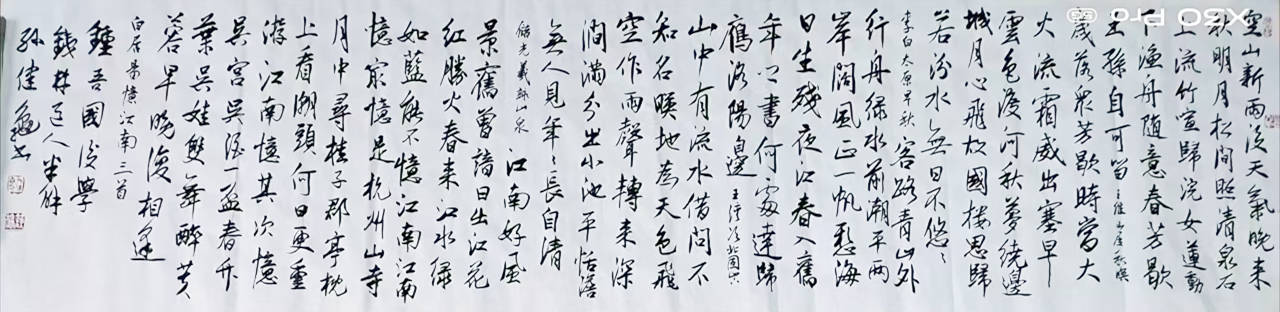 空山新雨後天氣晚来
秋明月松間照清泉石
上流竹喧歸浣女蓮動
下漁舟随意春芳歇
王孫自可留 王維山居秋暝
歲落衆芳歇時當大
火流霜威出塞早
雲色渡河秋夢繞邊
城月心飛故國樓思歸
若汾水無日不悠々
李白太原早秋 客路青山外
行舟綠水前潮平兩
岸闊風正一帆懸海
日生殘夜江春入舊
年乡書何處達歸
鴈洛陽邊 王湾次北固山下
山中有流水借問不
知名映地為天色飛
空作雨聲轉来深
澗滿分出小池平恬澹
無人見年々長自清
儲光羲詠山泉 江南好風
景舊曾諳日出江花
红勝火春来江水绿
如藍能不憶江南江南
憶最憶是杭州山寺
月中尋桂子郡亭枕
上看潮頭何日更重
游江南憶其次憶
吳宮吳酒一盃春竹
葉吳娃雙舞醉芙
蓉早晚復相逢
白居易憶江南三首
鍾吾國後學
道人半解
孫佳书
X80 Pro